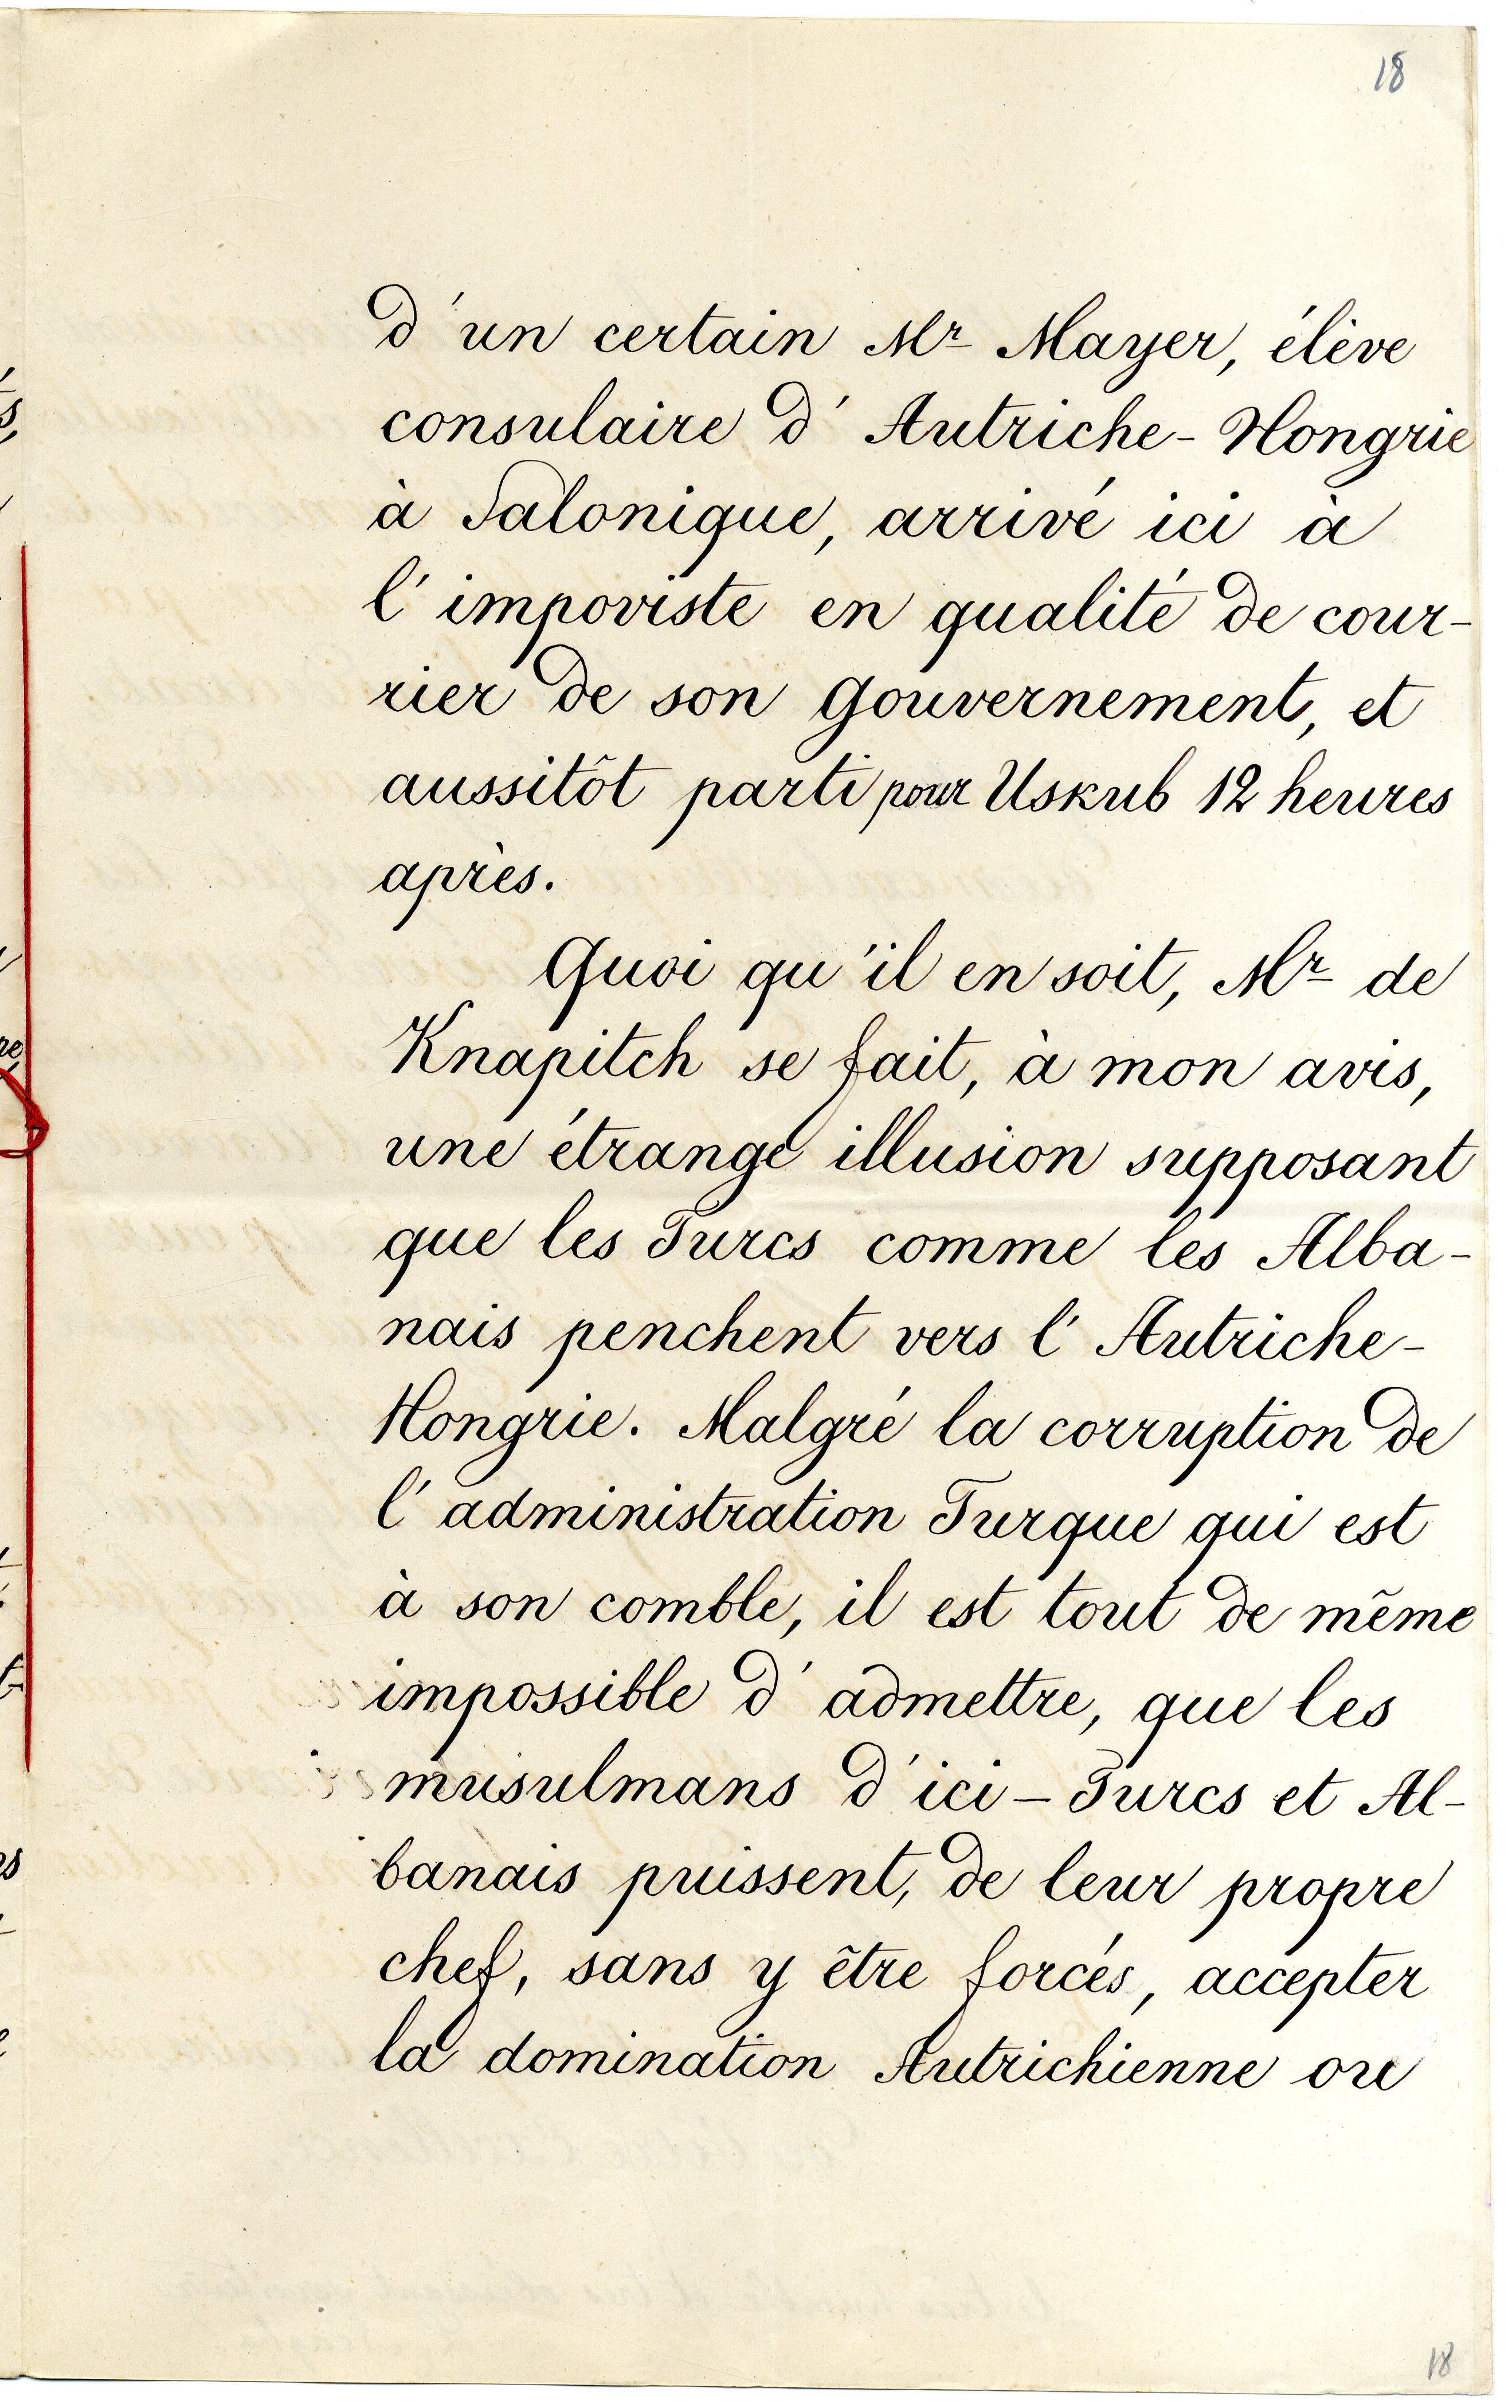 18
d'un certain Mr Mayer, élève
consulaire d'Autriche-Hongrie
à Salonique, arrivé ici à
l'impoviste en qualité de cour-
rier de son Gouvernement, et
aussitôt parti pour Uskub 12 heures
après.
Quoi qu'il en soit, Mr de
Knapitch se fait, à mon avis,
une étrange illusion supposant
que les Turcs comme les Alba-
nais penchent vers l'Autriche-
Hongrie. Malgré la corruption de
l'administration Turque qui est
à son comble, il est tout de même
impossible d'admettre, que les
musulmans d'ici - Turcs et Al-
banais puissent, de leur propre
chef, sans y être forcés, accepter
la domination Autrichienne ou
18